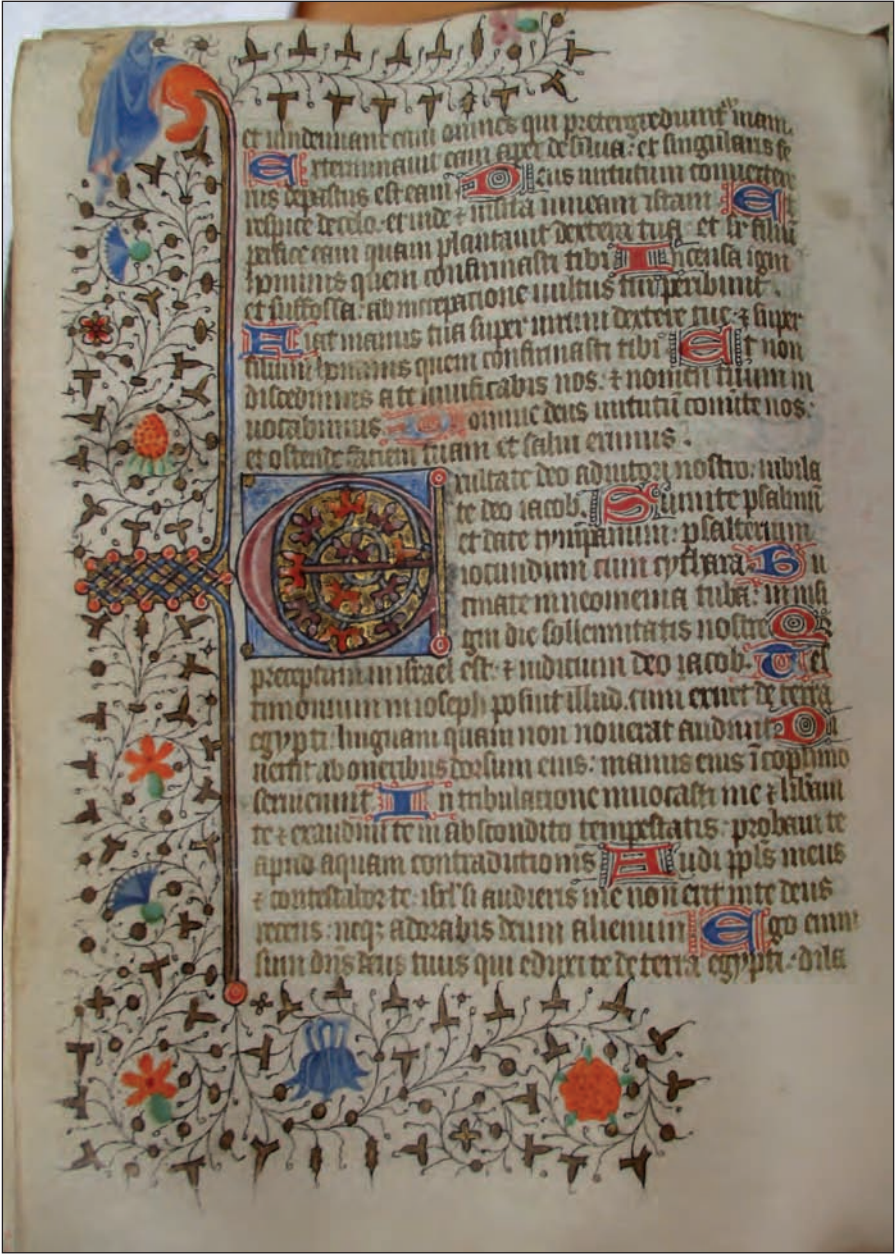 et vindemiant eam omnes qui pretergrediunt᷑ viam.
Exterminauit eam aper de silua: et singularis fe
rus depastus est eam Deus uirtutum conuertere
respice de celo. et uide ⁊ uisita uineam istam Et
perfice eam quam plantauit dextera tua. et sr̄ filiū
hominis quem confirmasti tibi Incensa igni
et suffossa. ab increpatione uultus tui peribunt .
Fiat manus tua super uirum dextere tue: ⁊ super
filium hominis quem confirmasti tibi Et non
discedimus a te uiuificabis nos. ⁊ nomen tuum in
uocabimus Domine deus uirtutū conũte nos:
et ostende faciem tuam et salui erimus .
Exultate deo adiutori nostro. iubila
te deo iacob. Sumite psalmū
et date tympanum: psalterium
iocundum cum cythara Bu
cinate in neomenia tuba: in insi
gni die sollennitatis nostre Qz
preceptum in israel est. ⁊ iudicium deo iacob. Tes
timonium in ioseph posuit illud. cum exiret de terra
egypti. linguam quam non nouerat audiuit Di
uertit ab oneribus dorsum eius: manus eius ī cophino
seruierunt In tribulatione inuocasti me ⁊ libaui
te ⁊ exaudiui te in abscondito tempestatis: probaui te
apud aquam contradictionis Audi ppl̄s meus
⁊ contestabor te. isrl̄ si audieris me non erit in te deus
recens: neqȝ adorabis deum alienum Ego enim
sum dn̄s deus tuus qui eduxi te de terra egypti: dila